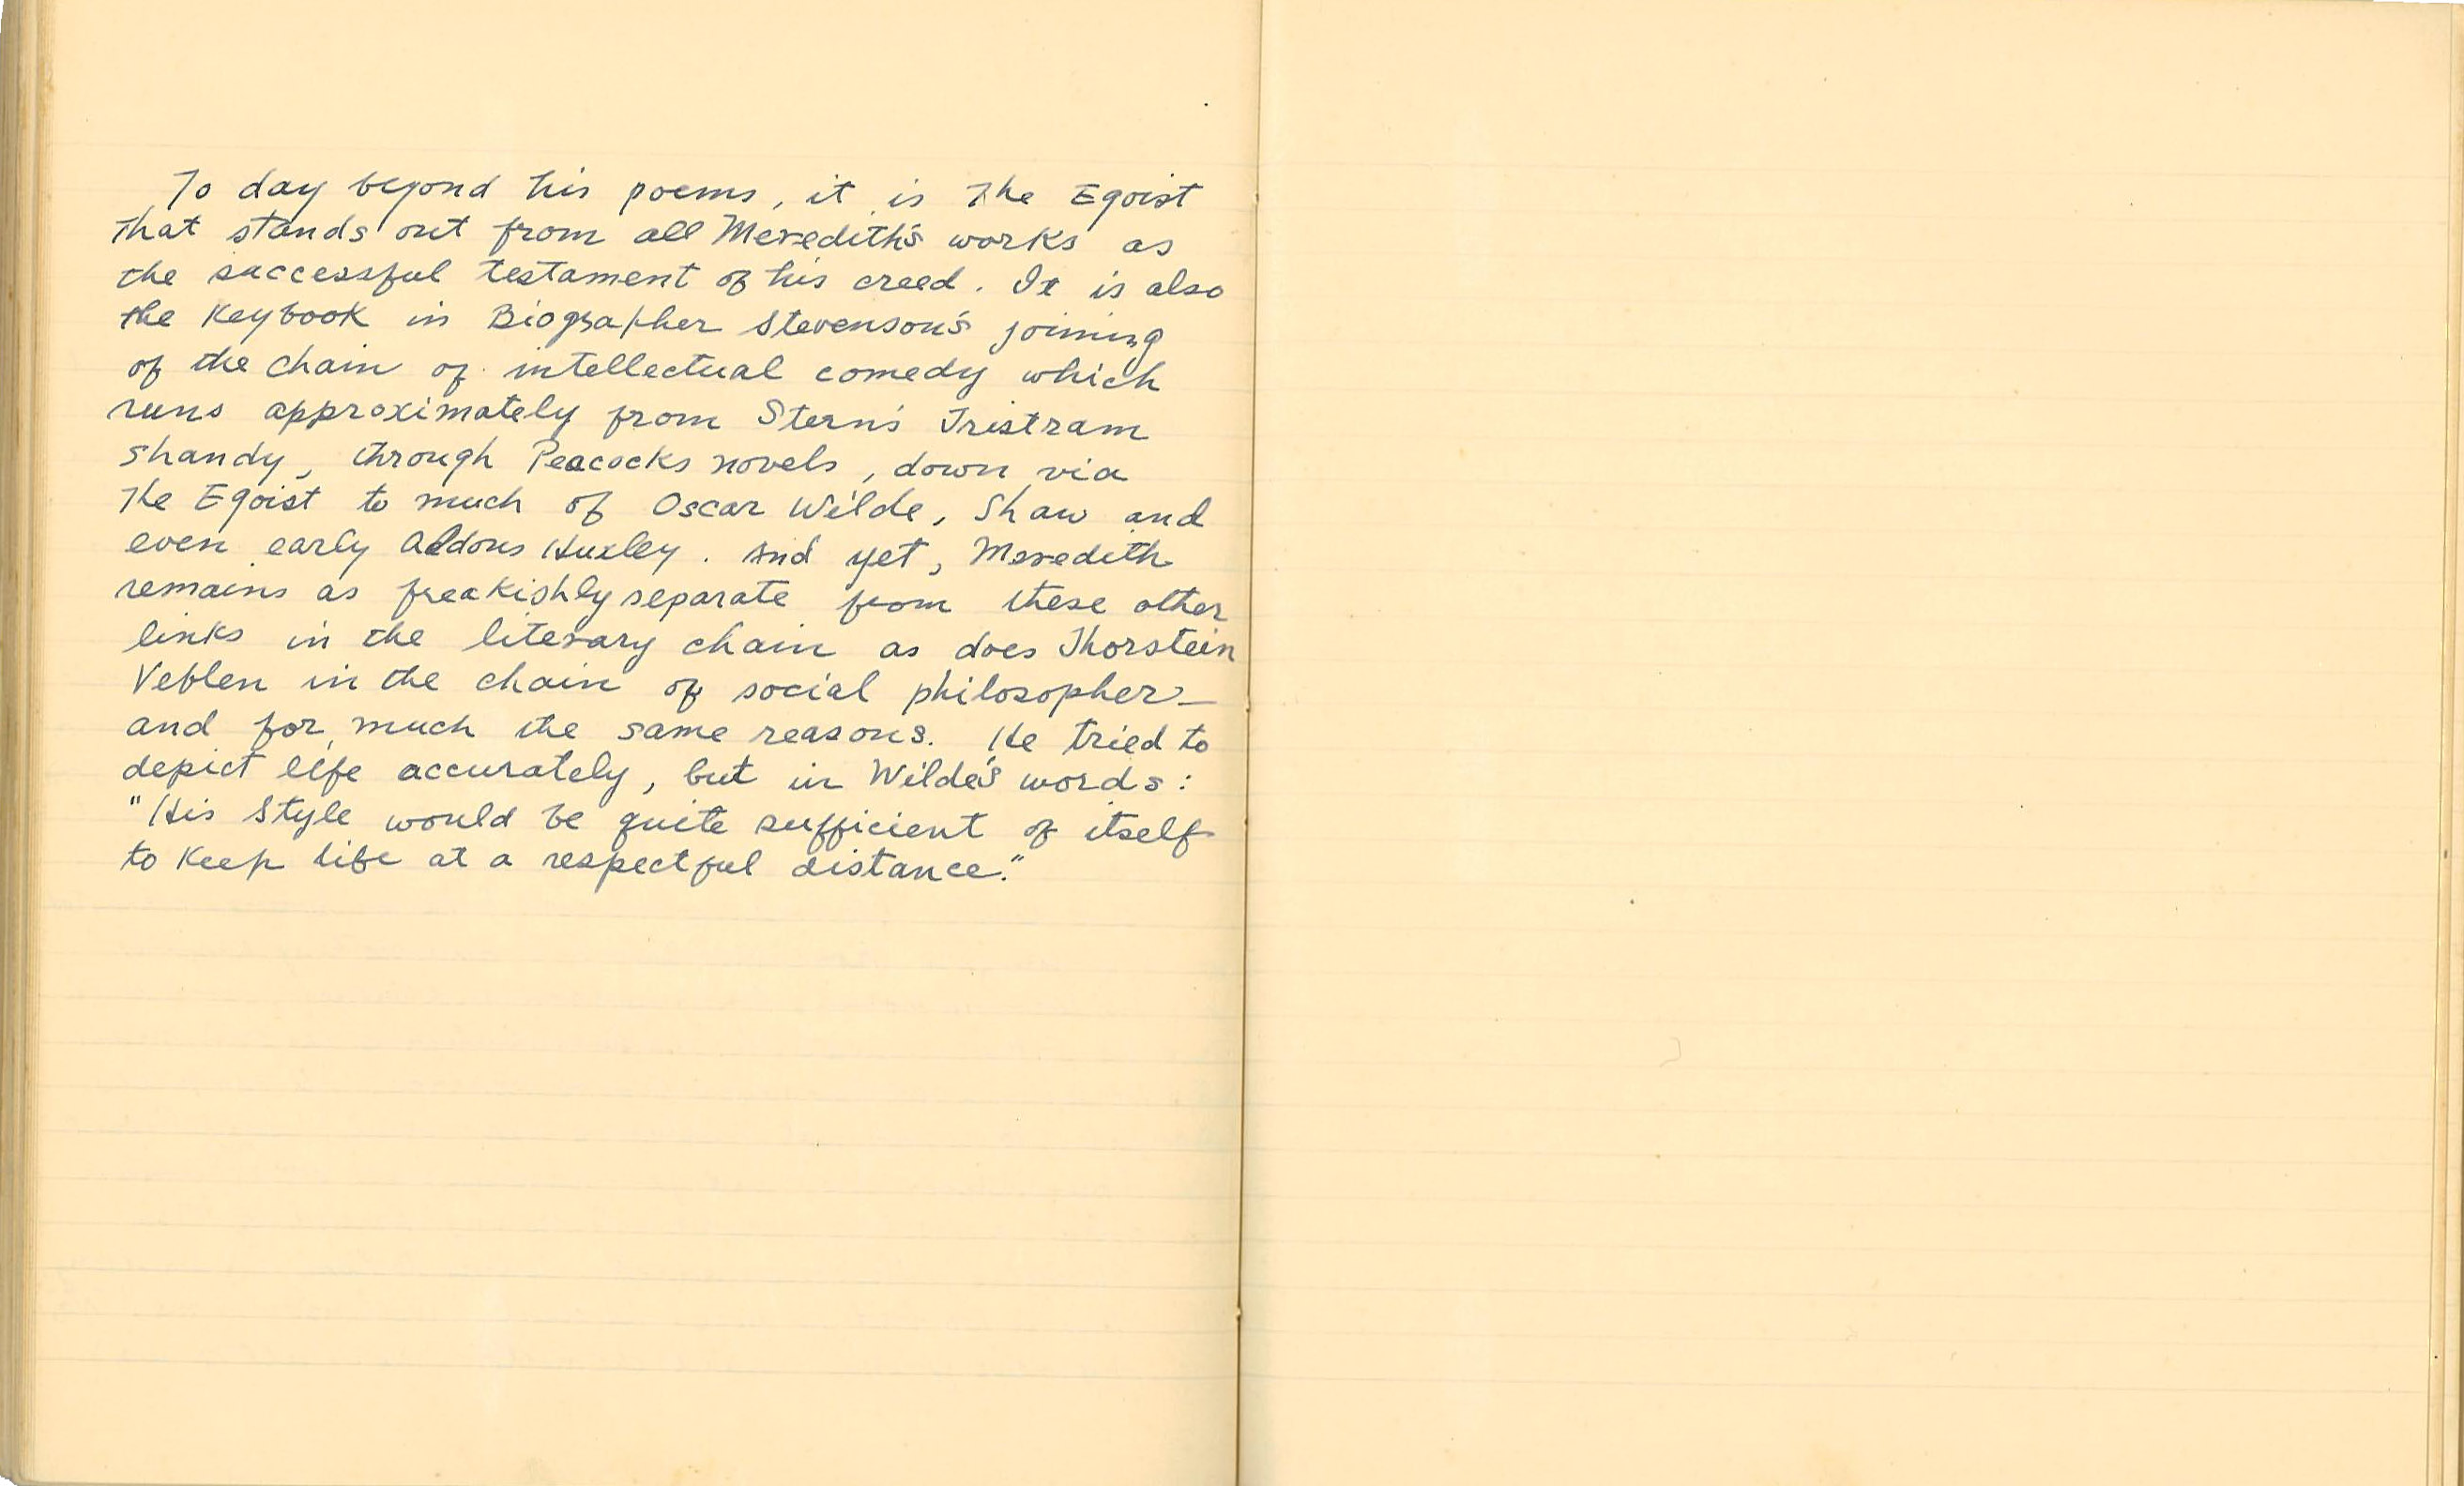 To day beyond his poems, it is The Egoist
that stands out from all Meredith's works as
the successful testament of his creed. It is also
the Keybook in Biographer Stevenson's joining
of the chain of intellectual comedy which
runs approximately from Stern's Tristram
Shandy, through Peacocks novels, down via
The Egoist to much of Oscar Wilde, Shaw and
even early Aldous Huxley. And yet, Meredith
remains as freakishly separate from these other
links in the literary chain as does Thorstein
Veblen in the chain of social philosophers—
and for much the same reasons. He tried to
depict life accurately, but in Wilde's words:
"His Style would be quite sufficient of itself
to Keep life at a respectful distance."